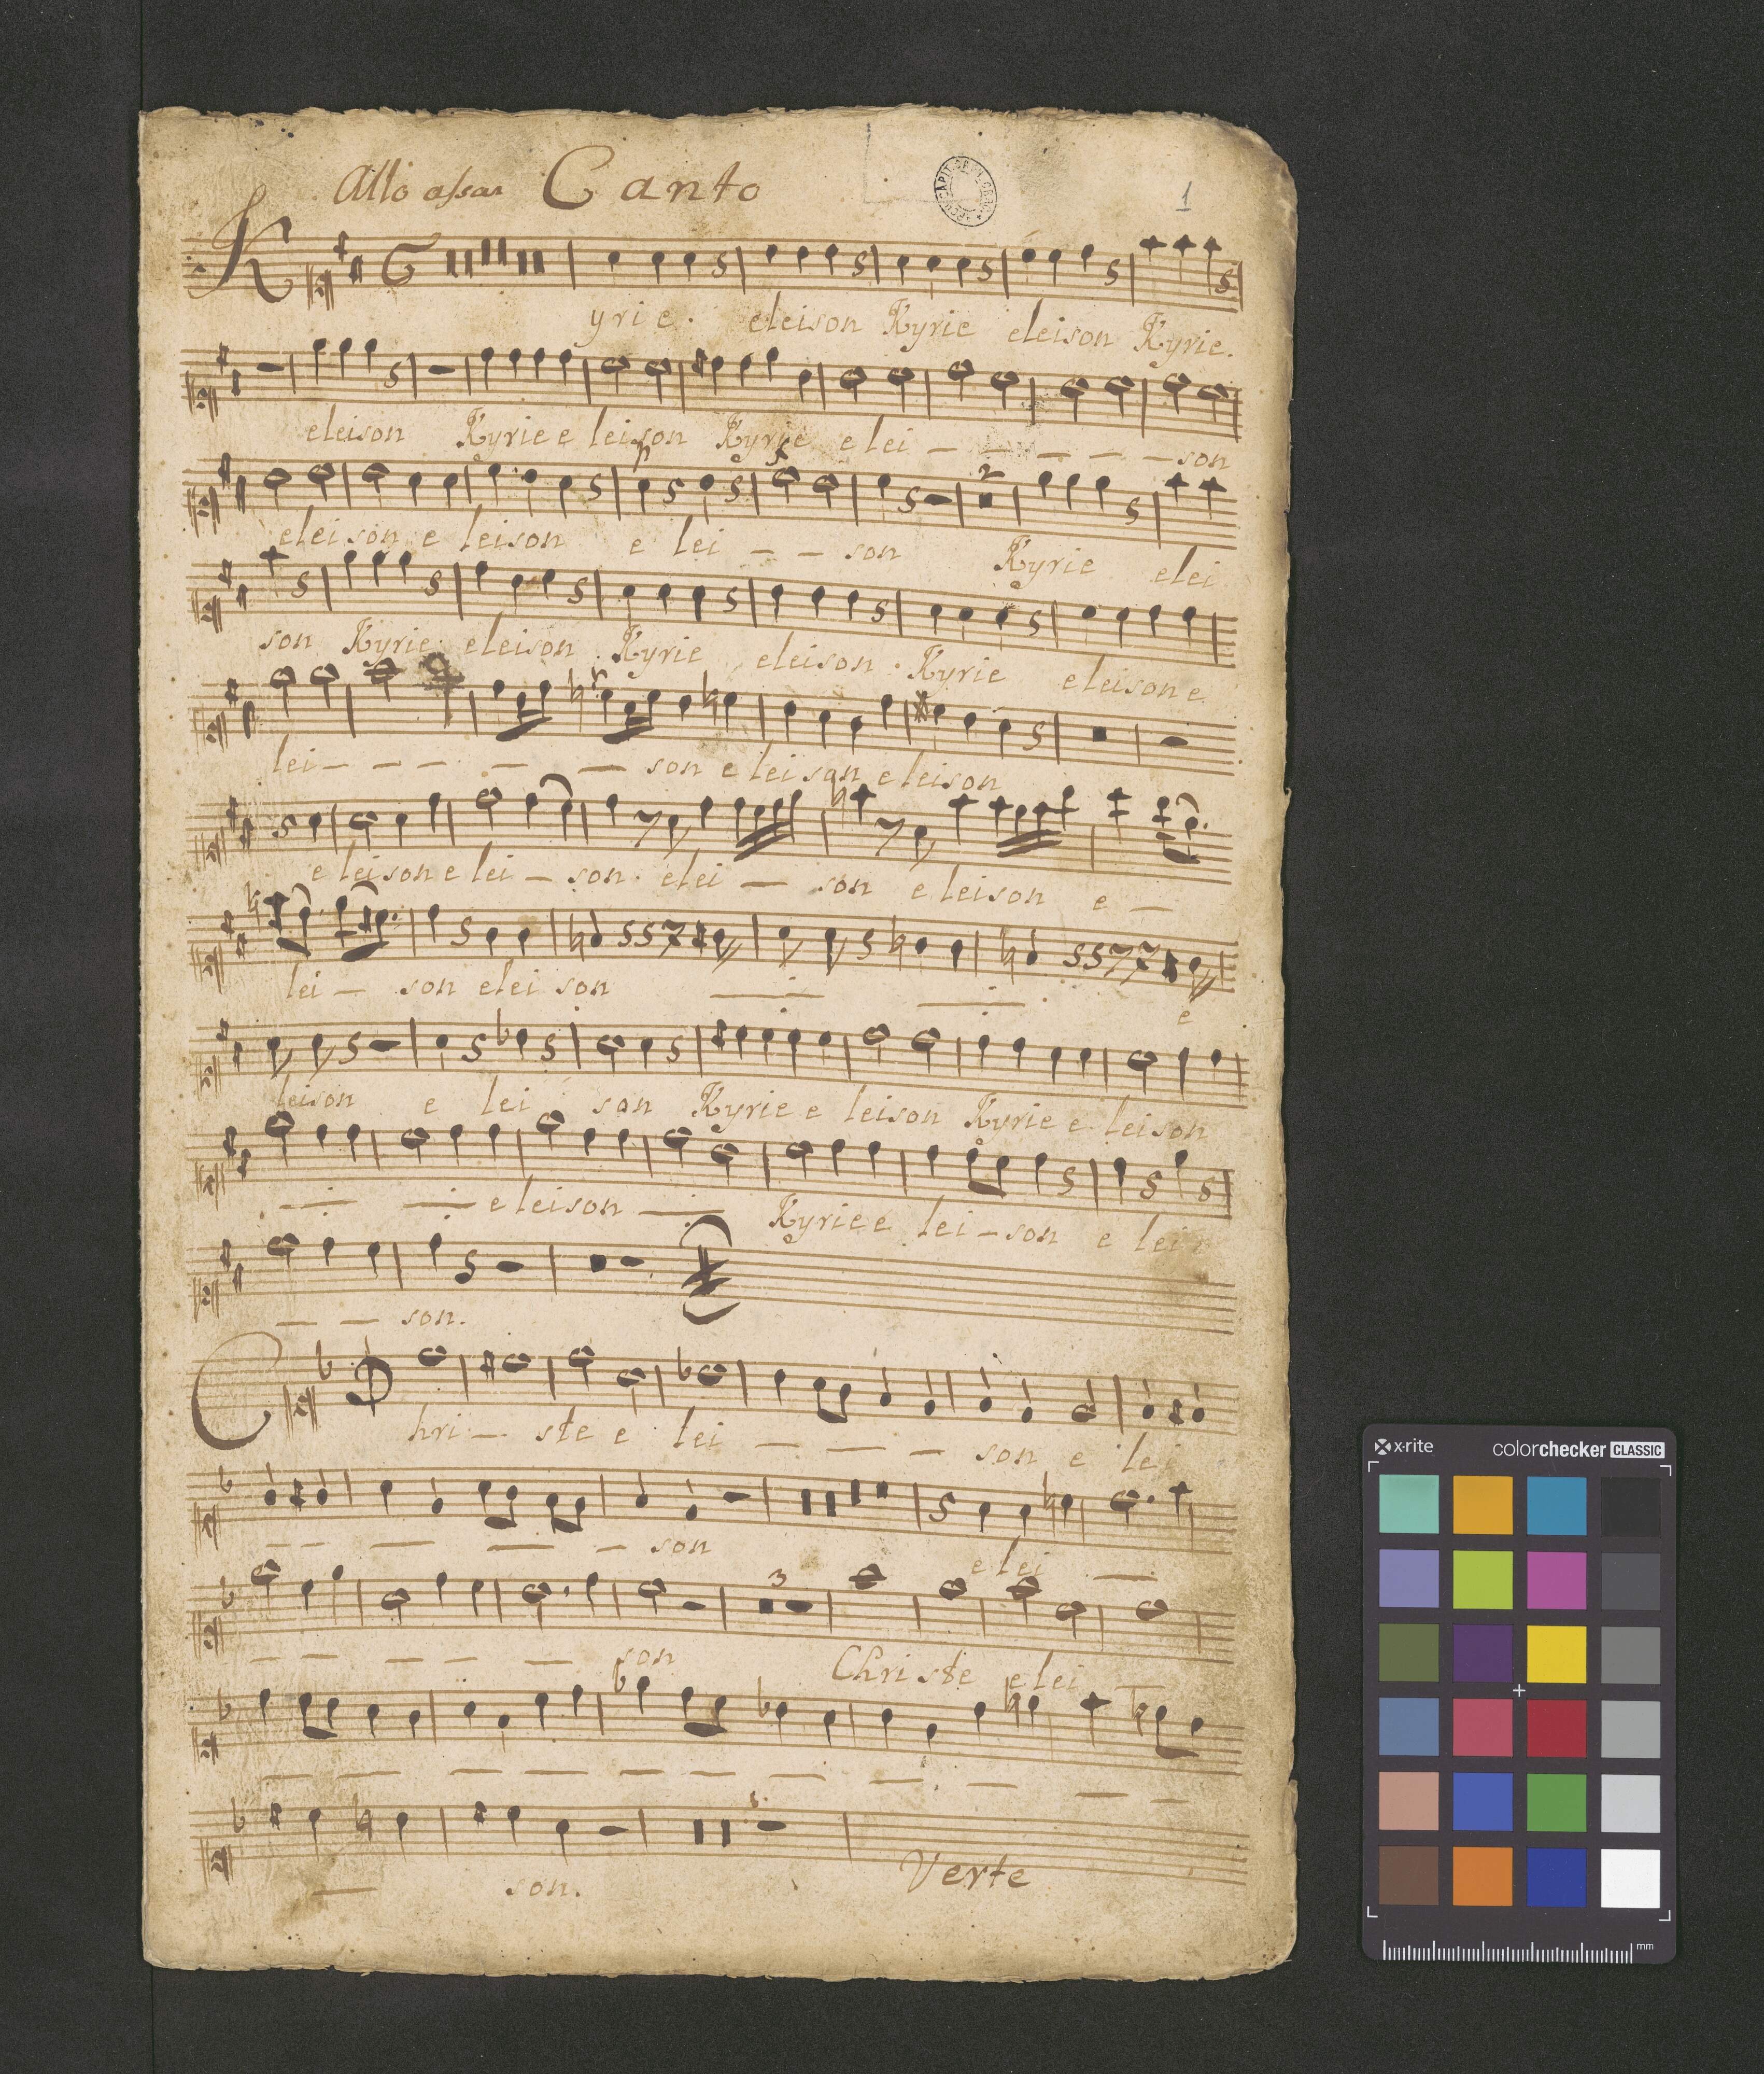 Allo assai Canto
1
K
yrie. eleison Kyrie eleison Kyrie.
eleison Kyrie e leison Kyrie e lei - - - - - son
p f
2
elei son e leison e lei - - son Kyrie elei
son Kyrie eleison. Kyrie eleison. Kyrie eleison e
lei - - - - - son e leison eleison
e leison e lei - son. elei - son e leison e -
lei - son elei son
e
leison e lei son Kyrie e leison Kyrie e leison
e leison Kyrie e lei - son e lei
- - son.
C
hri - ste e lei - - - son e lei
- - - - - son e lei -
3
- - - - - son Christe elei -
- son.
Verte
x-rite colorchecker CLASSIC
mm